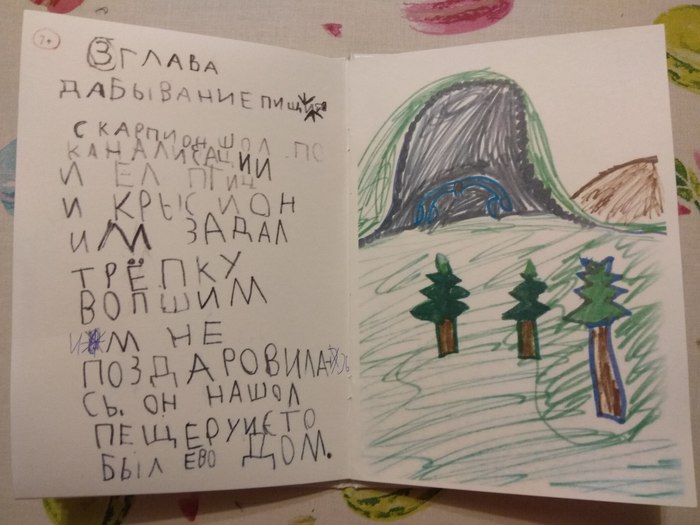 7+
3 ГЛАВА
ДАБЫВАНИЕ ПИЩИ
СКАРПИОН ШОЛ ПО
КАНАЛИСАЦИИ
И ЕЛ ПТИЦ
И КРЫС И ОН
ИМ ЗАДАЛ
ТРЁПКУ
ВОПШИМ
ИМ НЕ
ПОЗДАРОВИЛА
СЬ. ОН НАШОЛ
ПЕЩЕРУ И ЕТО
БЫЛ ЕВО ДОМ.